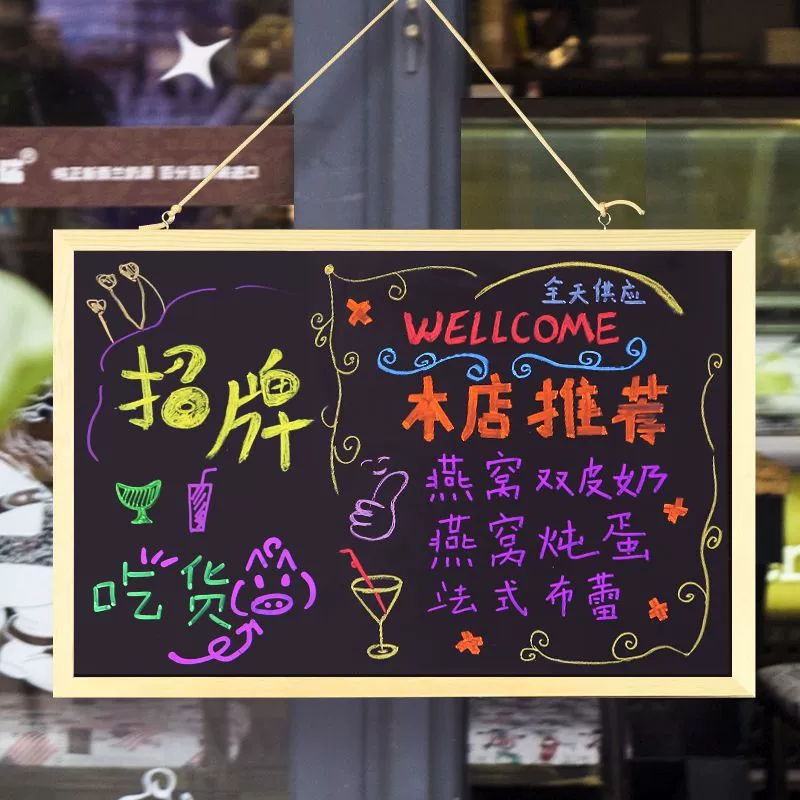 招牌
吃货
全天供应
WELLCOME
本店推荐
燕窝双皮奶
燕窝炖蛋
法式布蕾